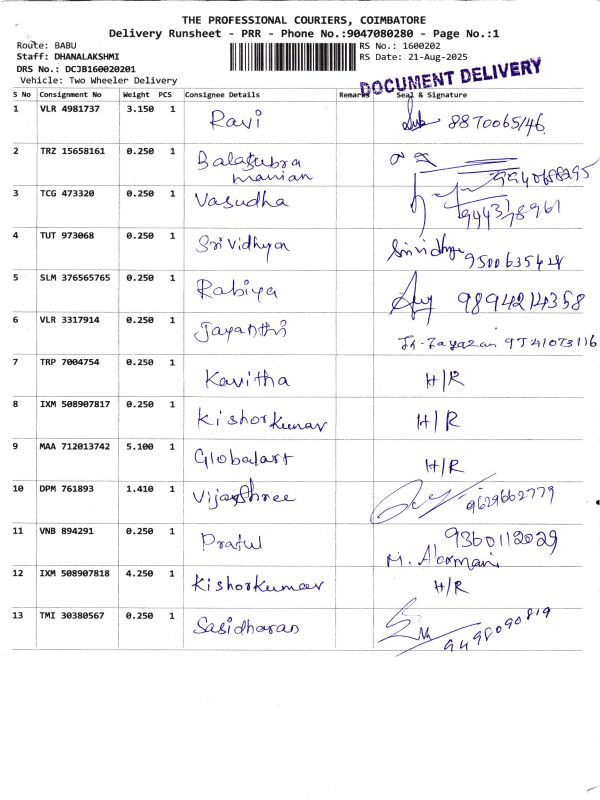 THE PROFESSIONAL COURIERS, COIMBATORE
Delivery Runsheet - PRR - Phone No.:9047080280 - Page No.:1
Route: BABU RS No.: 1600202
Staff: DHANALAKSHMI RS Date: 21-Aug-2025
DRS No.: DCJB160020201
Vehicle: Two Wheeler Delivery
DOCUMENT DELIVERY
S No Consignment No Weight PCS Consignee Details Remarks Seal & Signature
1 VLR 4981737 3.150 1 Ravi 8870065146
2 TRZ 15658161 0.250 1 Balasubra
manian
3 TCG 473320 0.250 1 Vasudha 944378961
4 TUT 973068 0.250 1 Srividhya Srividhya 9500635428
5 SLM 376565765 0.250 1 Rabiya 9894214358
6 VLR 3317914 0.250 1 Jayanthi 9741073116
7 TRP 7004754 0.250 1 Kavitha H/R
8 IXM 508907817 0.250 1 Kishorkumar H/R
9 MAA 712013742 5.100 1 Globalart H/R
10 DPM 761893 1.410 1 Vijayshree 9629662779
11 VNB 894291 0.250 1 Praful 9360112029
12 IXM 508907818 4.250 1 Kishorkumar H/R
13 TMI 30380567 0.250 1 Sasidharan 9498090819